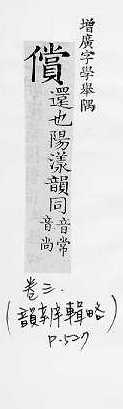 增廣字學舉隅
償還也陽漾韻同音常音尚
卷三.
(韻字辨略)
P.527